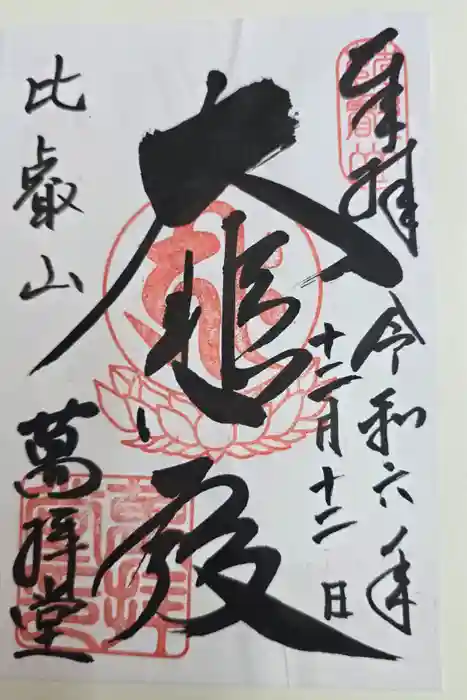 奉拝
令和六年
十二月十二日
大慈殿
比叡山
萬拝堂